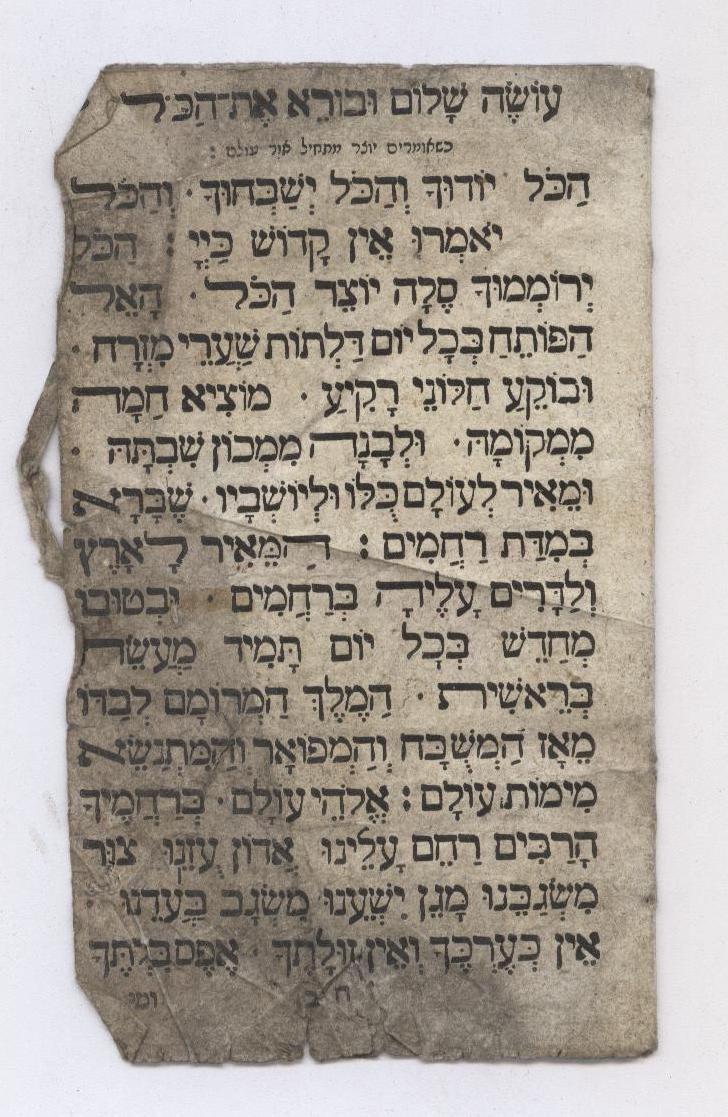 עוֹשֶׂה שָׁלוֹם וּבוֹרֵא אֶת־הַכֹּל
כשאומרים יוצר מתחיל אור עולם :
הַכֹּל יוֹדוּךָ וְהַכֹּל יְשַׁבְּחוּךָ · וְהַכֹּל
יֹאמְרוּ אֵין קָדוֹשׁ כַּיְיָ : הַכֹּל
יְרוֹמְמוּךָ סֶלָה יוֹצֵר הַכֹּל · הָאֵל
הַפּוֹתֵחַ בְּכָל יוֹם דַּלְתוֹת שַׁעֲרֵי מִזְרָח ·
וּבוֹקֵעַ חַלּוֹנֵי רָקִיעַ · מוֹצִיא חַמָּה
מִמְּקוֹמָהּ · וּלְבָנָה מִמְּכוֹן שִׁבְתָּהּ ·
וּמֵאִיר לְעוֹלָם כֻּלּוֹ וּלְיוֹשְׁבָיו · שֶׁבָּרָא
בְּמִדַּת רַחֲמִים : הַמֵּאִיר לָאָרֶץ
וְלַדָּרִים עָלֶיהָ בְּרַחֲמִים · וּבְטוּבוֹ
מְחַדֵּשׁ בְּכָל יוֹם תָּמִיד מַעֲשֵׂה
בְרֵאשִׁית · הַמֶּלֶךְ הַמְרוֹמָם לְבַדּוֹ
מֵאָז הַמְשֻׁבָּח וְהַמְפוֹאָר וְהַמִּתְנַשֵּׂא
מִימוֹת עוֹלָם : אֱלֹהֵי עוֹלָם · בְּרַחֲמֶיךָ
הָרַבִּים רַחֵם עָלֵינוּ אֲדוֹן עֻזֵּנוּ צוּר
מִשְׂגַּבֵּנוּ מָגֵן יִשְׁעֵנוּ מִשְׂגָּב בַּעֲדֵנוּ ·
אֵין כְּעֶרְכֶּךָ וְאֵין זוּלָתֶךָ · אֶפֶס בִּלְתֶּךָ
ח ב ומי